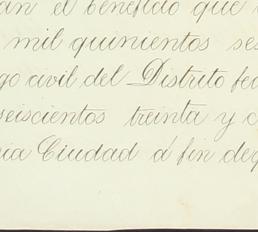 an el beneficio que
mil quinientos ses
go civil del Distrito fed
seiscientos treinta y c
ia Ciudad á fin de q